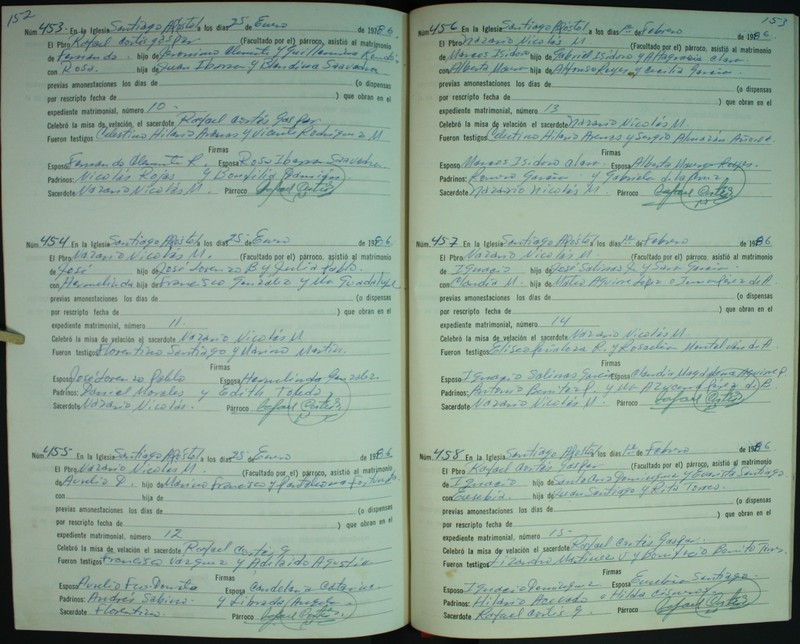 152
Núm. 453. En la Iglesia Santiago Apóstol a los días 25 de Enero de 1986.
El Pbro Rafael Cortés Gaspar (Facultado por el) párroco, asistió al matrimonio
de Fernando. hijo de
con Rosa. hija de Juan Ibarra y Blandina Saavedra
previas amonestaciones los días de (o dispensas
por rescripto fecha de ) que obran en el
expediente matrimonial, número 10.
Celebró la misa de velación el sacerdote Rafael Cortés Gaspar
Fueron testigos Celestino Hilario Arenas y Vicente Rodríguez M
Firmas
Esposo Fernando R. Esposa Rosa Ibarra Saavedra
Padrinos: Nicolás Rojas y Bonfilia
Sacerdote Nazario Nicolás M. Párroco Rafael Cortés
Núm. 454 En la Iglesia Santiago Apóstol a los días 25 de Enero de 1986.
El Pbro Nazario Nicolás M. (Facultado por el) párroco, asistió al matrimonio
de José hijo de José Lorenzo B y Julia Pablo.
con Hermelinda hija de Francisco González y Ma Guadalupe
previas amonestaciones los días de (o dispensas
por rescripto fecha de ) que obran en el
expediente matrimonial, número 11.
Celebró la misa de velación el sacerdote Nazario Nicolás M
Fueron testigos Florentino Santiago y Marino Martín.
Firmas
Esposo José Lorenzo Pablo Esposa Hermelinda González
Padrinos: Daniel Morales y Edith Toledo
Sacerdote Nazario Nicolás. Párroco Rafael Cortés
Núm. 455 En la Iglesia Santiago Apóstol a los días 25 de Enero de 1986
El Pbro Nazario Nicolás M. (Facultado por el) párroco, asistió al matrimonio
de Aurelio D. hijo de Marino Francisco y
con hija de
previas amonestaciones los días de (o dispensas
por rescripto fecha de ) que obran en el
expediente matrimonial, número 12
Celebró la misa de velación el sacerdote Rafael Cortés G
Fueron testigos Francisco Vázquez y Adelaido Agustín
Firmas
Esposo Aurelio Fco. Esposa Candelaria Catarina
Padrinos: Andrés Sabino y Librada
Sacerdote Florentino. Párroco Rafael Cortés
153
Núm. 456 En la Iglesia Santiago Apóstol a los días 1o de Febrero de 1986
El Pbro Nazario Nicolás M (Facultado por el) párroco, asistió al matrimonio
de Marcos Isidoro hijo de Gabriel Isidoro y
con Alberta hija de Alfonso Reyes y Cecilia García
previas amonestaciones los días de (o dispensas
por rescripto fecha de ) que obran en el
expediente matrimonial, número 13
Celebró la misa de velación el sacerdote Nazario Nicolás M.
Fueron testigos Celestino Hilario Arenas y Sergio Almazán
Firmas
Esposo Marcos Isidoro Esposa Alberta Reyes.
Padrinos: García y Gabriela de la Cruz
Sacerdote Nazario Nicolás M. Párroco Rafael Cortés
Núm. 457 En la Iglesia Santiago Apóstol a los días 1o de Febrero de 1986
El Pbro Nazario Nicolás M (Facultado por el) párroco, asistió al matrimonio
de Ignacio hijo de José Salinas J. y Sara García
con Claudia M. hija de Mateo Aguirre e
previas amonestaciones los días de (o dispensas
por rescripto fecha de ) que obran en el
expediente matrimonial, número 14
Celebró la misa de velación el sacerdote Nazario Nicolás M
Fueron testigos Eliseo R. y Rosalía Montalván de A.
Firmas
Esposo Ignacio Salinas García Esposa Claudia Magdalena Aguirre P
Padrinos: Antonio Benítez P. y Ma Azucena de B.
Sacerdote Nazario Nicolás M. Párroco Rafael Cortés
Núm. 458 En la Iglesia Santiago Apóstol a los días 1o de Febrero de 1986
El Pbro Rafael Cortés Gaspar (Facultado por el) párroco, asistió al matrimonio
de Ignacio hijo de Santos Domínguez y Evarista Santiago
con Eusebia. hija de Juan Santiago y Rita Torres.
previas amonestaciones los días de (o dispensas
por rescripto fecha de ) que obran en el
expediente matrimonial, número 15
Celebró la misa de velación el sacerdote Rafael Cortés Gaspar.
Fueron testigos Lizandro Martínez V y Bonifacio Benito
Firmas
Esposo Ignacio Domínguez Esposa Eusebia Santiago
Padrinos: Hilario Acevedo e Hilda Cisneros
Sacerdote Rafael Cortés G. Párroco Rafael Cortés